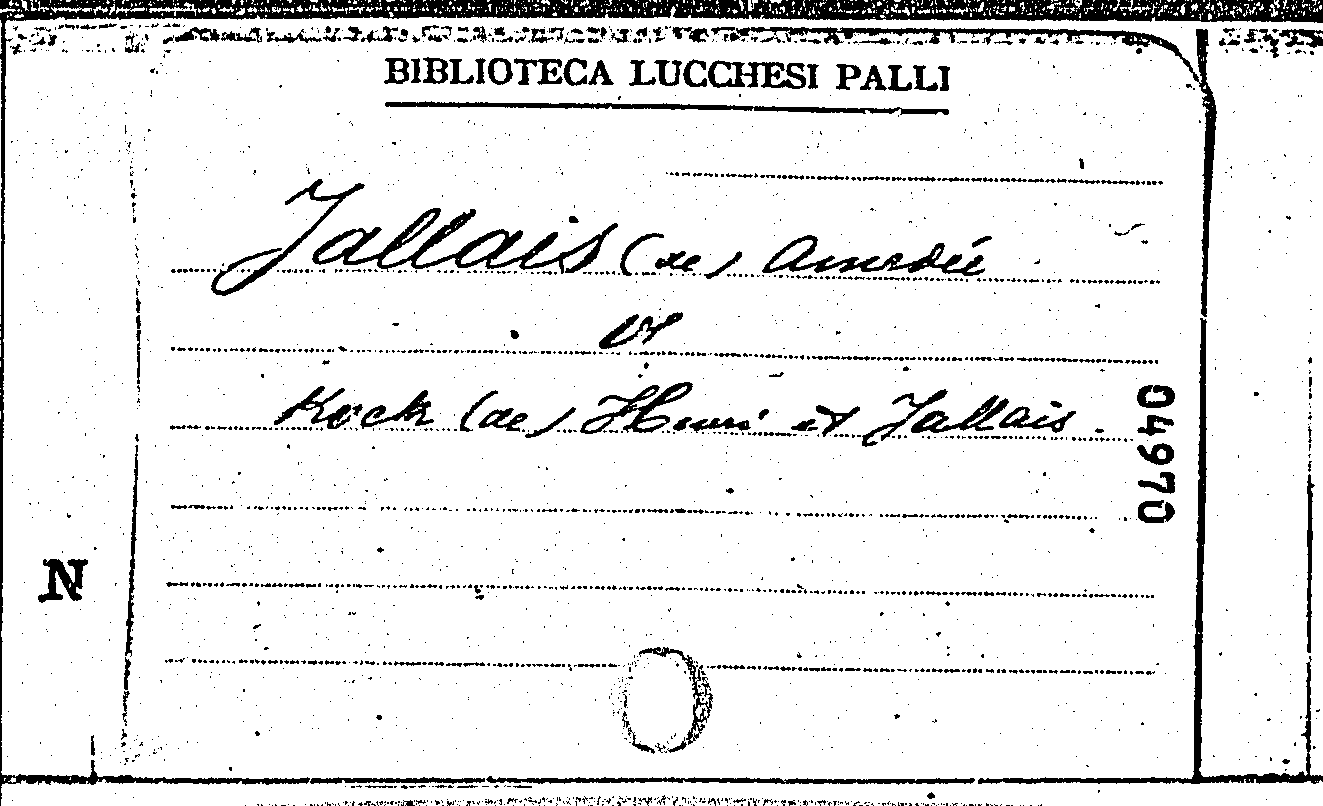 BIBLIOTECA LUCCHESI PALLI
Jallais (de) Amedée
Vt
Kock (de) Henri et Jallais.
04970
N